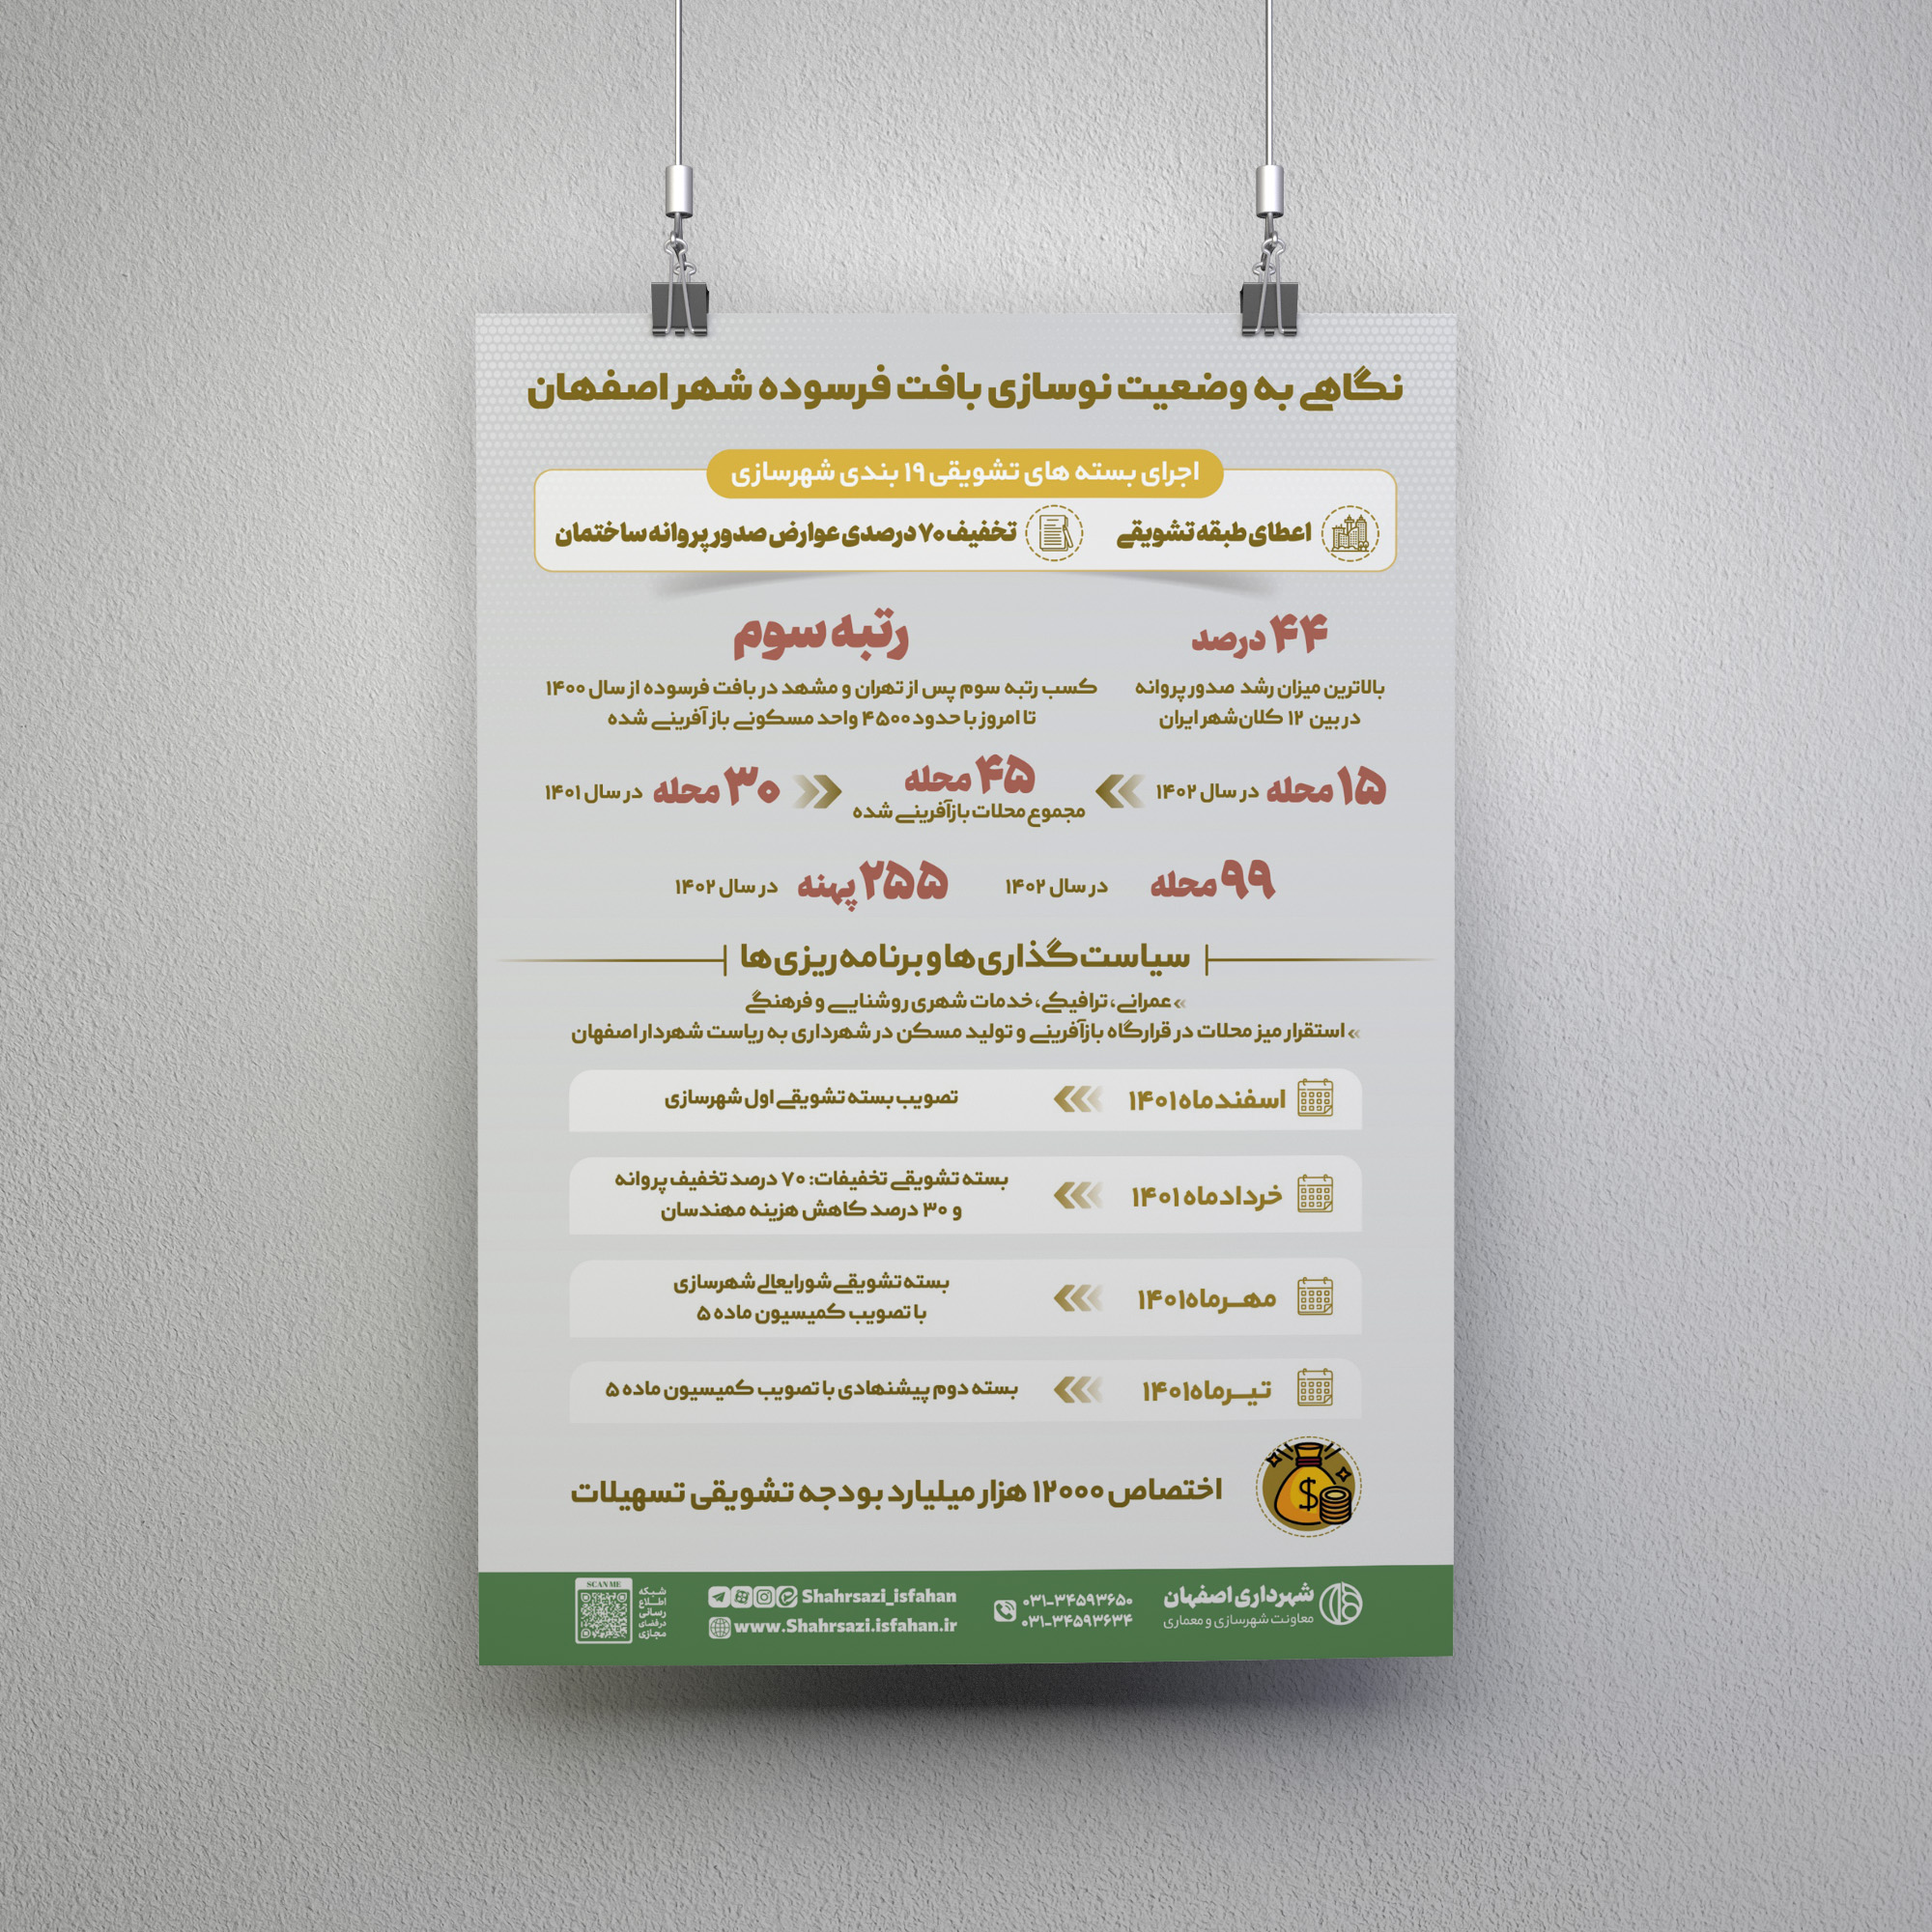 نگاهی به وضعیت نوسازی بافت فرسوده شهر اصفهان
اجرای بسته های تشویقی ۱۹ بندی شهرسازی
اعطای طبقه تشویقی
تخفیف ۷۰ درصدی عوارض صدور پروانه ساختمان
۴۴ درصد
بالاترین میزان رشد صدور پروانه
در بین ۱۲ کلان‌شهر ایران
رتبه سوم
کسب رتبه سوم پس از تهران و مشهد در بافت فرسوده از سال ۱۴۰۰
تا امروز با حدود ۴۵۰۰ واحد مسکونی باز آفرینی شده
۱۵ محله در سال ۱۴۰۲
۴۵ محله
مجموع محلات بازآفرینی شده
۳۰ محله در سال ۱۴۰۱
۹۹ محله در سال ۱۴۰۲
۲۵۵ پهنه در سال ۱۴۰۲
سیاست‌گذاری‌ها و برنامه‌ریزی‌ها
» عمرانی، ترافیکی، خدمات شهری روشنایی و فرهنگی
» استقرار میز محلات در قرارگاه بازآفرینی و تولید مسکن در شهرداری به ریاست شهردار اصفهان
اسفندماه ۱۴۰۱
تصویب بسته تشویقی اول شهرسازی
خردادماه ۱۴۰۱
بسته تشویقی تخفیفات: ۷۰ درصد تخفیف پروانه
و ۳۰ درصد کاهش هزینه مهندسان
مهـرماه ۱۴۰۱
بسته تشویقی شورایعالی شهرسازی
با تصویب کمیسیون ماده ۵
تیـرماه ۱۴۰۱
بسته دوم پیشنهادی با تصویب کمیسیون ماده ۵
اختصاص ۱۲۰۰۰ هزار میلیارد بودجه تشویقی تسهیلات
شهرداری اصفهان
معاونت شهرسازی و معماری
۰۳۱-۳۴۵۹۳۶۵۰
۰۳۱-۳۴۵۹۳۶۳۴
Shahrsazi_isfahan
www.Shahrsazi.isfahan.ir
شبکه
اطـلاع
رسانی
درفضای
مجازی
SCAN ME